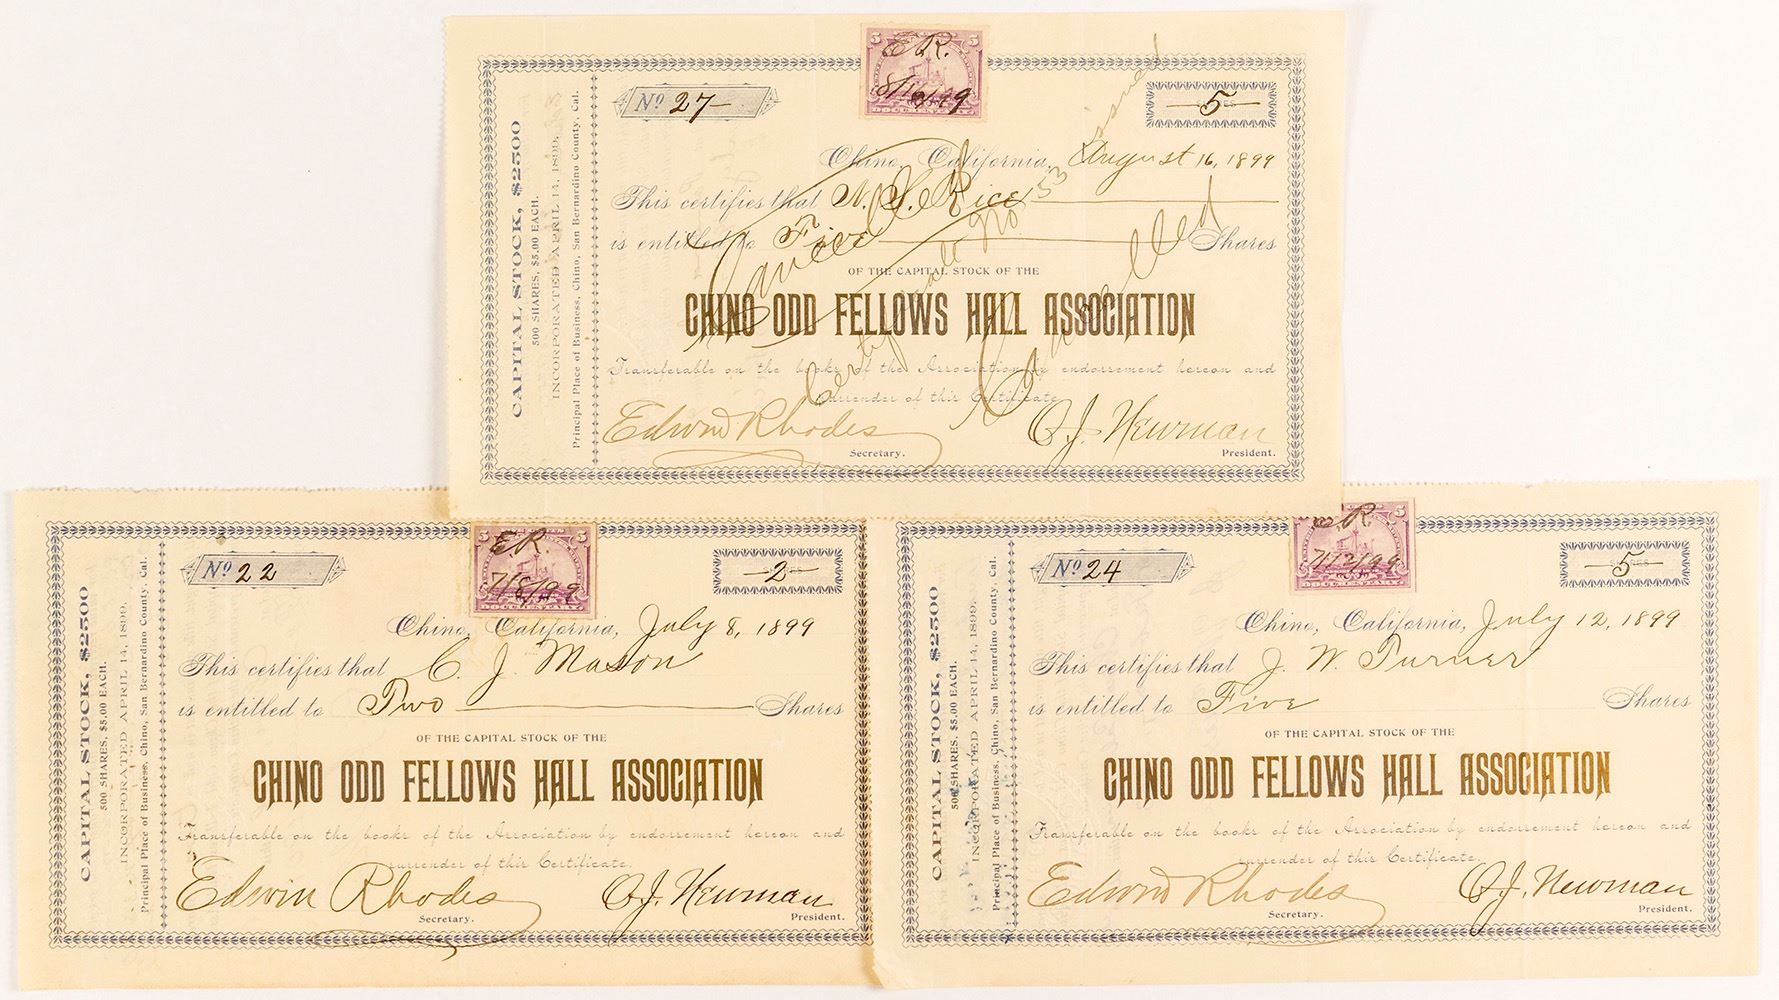 CAPITAL STOCK, $2500
500 SHARES, $5.00 EACH.
INCORPORATED APRIL 14, 1899.
Principal Place of Business, Chino, San Bernardino County, Cal.
Nº 27
5 5
E.R.
8/16/99
DOCUMENTARY
5
Chino, California, August 16, 1899
This certifies that N. S. Rice
is entitled to Five Shares
OF THE CAPITAL STOCK OF THE
CHINO ODD FELLOWS HALL ASSOCIATION
Transferable on the books of the Association by endorsement hereon and
surrender of this Certificate.
Edwin Rhodes
Secretary.
O. J. Newman
President.
Cancelled
Certificate No 53 issued
Cancelled
CAPITAL STOCK, $2500
500 SHARES, $5.00 EACH.
INCORPORATED APRIL 14, 1899.
Principal Place of Business, Chino, San Bernardino County, Cal.
Nº 22
5 5
E.R.
7/8/99
DOCUMENTARY
2
Chino, California, July 8, 1899
This certifies that C. J. Mason
is entitled to Two Shares
OF THE CAPITAL STOCK OF THE
CHINO ODD FELLOWS HALL ASSOCIATION
Transferable on the books of the Association by endorsement hereon and
surrender of this Certificate.
Edwin Rhodes
Secretary.
O. J. Newman
President.
CAPITAL STOCK, $2500
500 SHARES, $5.00 EACH.
INCORPORATED APRIL 14, 1899.
Principal Place of Business, Chino, San Bernardino County, Cal.
Nº 24
5
E.R.
7/12/99
DOCUMENTARY
5
Chino, California, July 12, 1899
This certifies that J. W. Turner
is entitled to Five Shares
OF THE CAPITAL STOCK OF THE
CHINO ODD FELLOWS HALL ASSOCIATION
Transferable on the books of the Association by endorsement hereon and
surrender of this Certificate.
Edwin Rhodes
Secretary.
O. J. Newman
President.